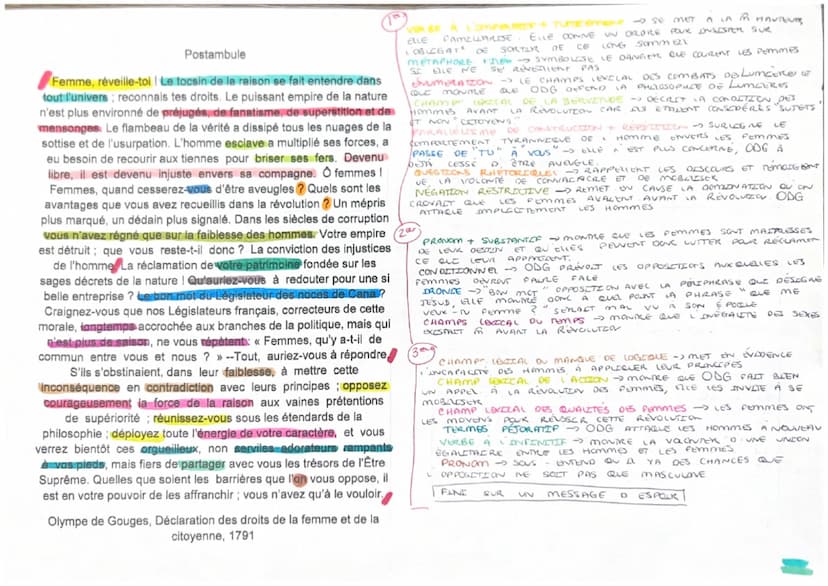 Postambule
Femme, réveille-toi ! Le tocsin de la raison se fait entendre dans
tout l'univers ; reconnais tes droits. Le puissant empire de la nature
n'est plus environné de préjugés, de fanatisme, de superstition et de
mensonges. Le flambeau de la vérité a dissipé tous les nuages de la
sottise et de l'usurpation. L'homme esclave a multiplié ses forces, a
eu besoin de recourir aux tiennes pour briser ses fers. Devenu
libre, il est devenu injuste envers sa compagne. Ô femmes !
Femmes, quand cesserez-vous d'être aveugles ? Quels sont les
avantages que vous avez recueillis dans la révolution ? Un mépris
plus marqué, un dédain plus signalé. Dans les siècles de corruption
vous n'avez régné que sur la faiblesse des hommes. Votre empire
est détruit ; que vous reste-t-il donc ? La conviction des injustices
de l'homme. La réclamation de votre patrimoine fondée sur les
sages décrets de la nature ! Qu'auriez-vous à redouter pour une si
belle entreprise ? Le bon mot du Législateur des noces de Cana ?
Craignez-vous que nos Législateurs français, correcteurs de cette
morale, longtemps accrochée aux branches de la politique, mais qui
n'est plus de saison, ne vous répètent : « Femmes, qu'y a-t-il de
commun entre vous et nous ? » --Tout, auriez-vous à répondre.
S'ils s'obstinaient, dans leur faiblesse, à mettre cette
inconséquence en contradiction avec leurs principes ; opposez
courageusement la force de la raison aux vaines prétentions
de supériorité ; réunissez-vous sous les étendards de la
philosophie ; déployez toute l'énergie de votre caractère, et vous
verrez bientôt ces orgueilleux, non serviles adorateurs rampants
à vos pieds, mais fiers de partager avec vous les trésors de l'Être
Suprême. Quelles que soient les barrières que l'on vous oppose, il
est en votre pouvoir de les affranchir ; vous n'avez qu'à le vouloir.
Olympe de Gouges, Déclaration des droits de la femme et de la
citoyenne, 1791
1er
VERBE À L'IMPÉRATIF + TUTOIEMENT → SE MET A LA M HAUTEUR
ELLE FAMILIARISE. ELLE DONNE UN ORDRE POUR INSISTER SUR
L'OBLIGAT° DE SORTIR DE CE LONG SOMMEIL
MÉTAPHORE → SYMBOLISE LE DANGER QUE COURENT LES FEMMES
SI ELLE NE SE RÉVEILLENT PAS
ÉNUMÉRATION → LE CHAMPS LEXICAL DES COMBATS DES LUMIÈRES ET
QUE MONTRE QUE ODG DÉFEND LA PHILOSOPHIE DE LUMIÈRES
CHAMP LEXICAL DE LA SERVITUDE → DÉCRIT LA CONDITION DES
HOMMES AVANT LA RÉVOLUTION CAR ILS ÉTAIENT CONSIDÉRÉS "SUJETS"
ET NON "CITOYENS"
PARALLÉLISME DE CONSTRUCTION + RÉPÉTITION → SURLIGNE LE
COMPORTEMENT TYRANNIQUE DE L'HOMME ENVERS LES FEMMES
PASSE DE "TU" À "VOUS" → ELLE N'EST PLUS CONCERNÉ, ODG A
DÉJÀ CESSÉ D'ÊTRE AVEUGLE.
QUESTIONS RHÉTORIQUES → RAPPELLENT LES DISCOURS ET TÉMOIGENT
DE LA VOLONTÉ DE CONVAINCRE ET DE MOBILISER
NÉGATION RESTRICTIVE → REMET EN CAUSE LA DOMINATION QU'ON
CROYAIT QUE LES FEMMES AVAIENT AVANT LA RÉVOLUTION ODG
ATTAQUE IMPLICITEMENT LES HOMMES
2ème
PRONOM + SUBSTANTIF → MONTRE QUE LES FEMMES SONT MAITRESSES
DE LEUR DESTIN ET QU'ELLES PEUVENT DONC LUTTER POUR RÉCLAMER
CE QUI LEUR APPARTIENT.
CONDITIONNEL → ODG PRÉVOIT LES OPPOSITIONS AUXQUELLES LES
FEMMES DEVRONT FAIRE FACE
IRONIE → "BON MOT" OPPOSITION AVEC LA PÉRIPHRASE QUI DÉSIGNE
JÉSUS, ELLE MONTRE DONC A QUEL POINT LA PHRASE "QUE ME
VEUX-TU FEMME ?" SERAIT MAL VU A SON ÉPOQUE
CHAMPS LEXICAL DU TEMPS → MONTRE QUE L'INÉGALITÉ DES SEXES
EXISTAIT M AVANT LA RÉVOLUTION
3ème
CHAMPS LEXICAL DU MANQUE DE LOGIQUE → MET EN ÉVIDENCE
L'INCAPACITÉ DES HOMMES A APPLIQUER LEUR PRINCIPES
CHAMP LEXICAL DE L'ACTION → MONTRE QUE ODG FAIT BIEN
UN APPEL A LA RÉVOLUTION DES FEMMES, ELLE LES INVITE A SE
MOBILISER
CHAMP LEXICAL DES QUALITÉS DES FEMMES → LES FEMMES ONT
LES MOYENS POUR RÉUSSIR CETTE RÉVOLUTION
TERMES PÉJORATIF → ODG ATTAQUE LES HOMMES A NOUVEAU
VERBE À L'INFINITIF → MONTRE LA VOLONTÉ D'UNE UNION
ÉGALITAIRE ENTRE LES HOMMES ET LES FEMMES
PRONOM → SOUS-ENTEND QU'IL Y A DES CHANCES QUE
L'OPPOSITION NE SOIT PAS QUE MASCULINE
FINI SUR UN MESSAGE D'ESPOIR